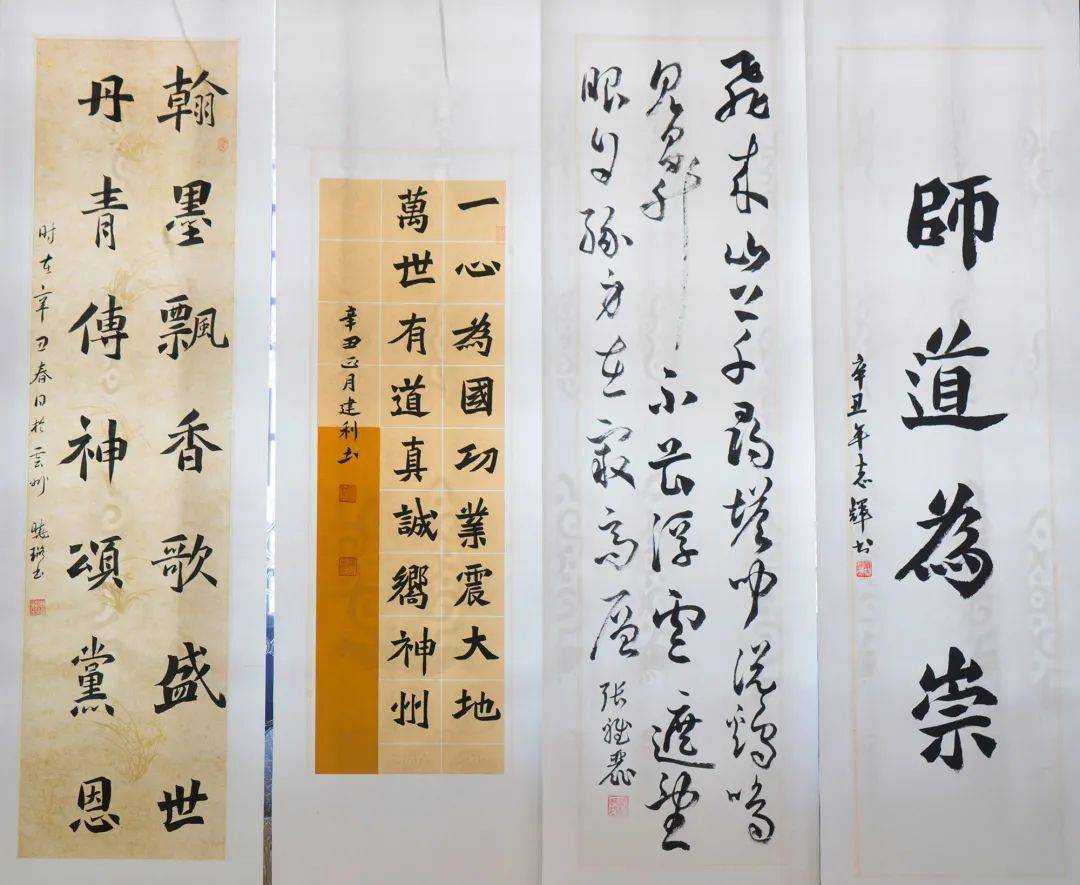 師道為崇
辛丑年志輝书
飛来山上千尋塔聞説鷄鳴
見日昇不畏浮雲遮望
眼自緣身在最高層
张雅
一心為國功業震大地
萬世有道真誠嚮神州
辛丑正月建利书
翰墨飄香歌盛世
丹青傳神頌黨恩
时在辛丑春日於雲州 书